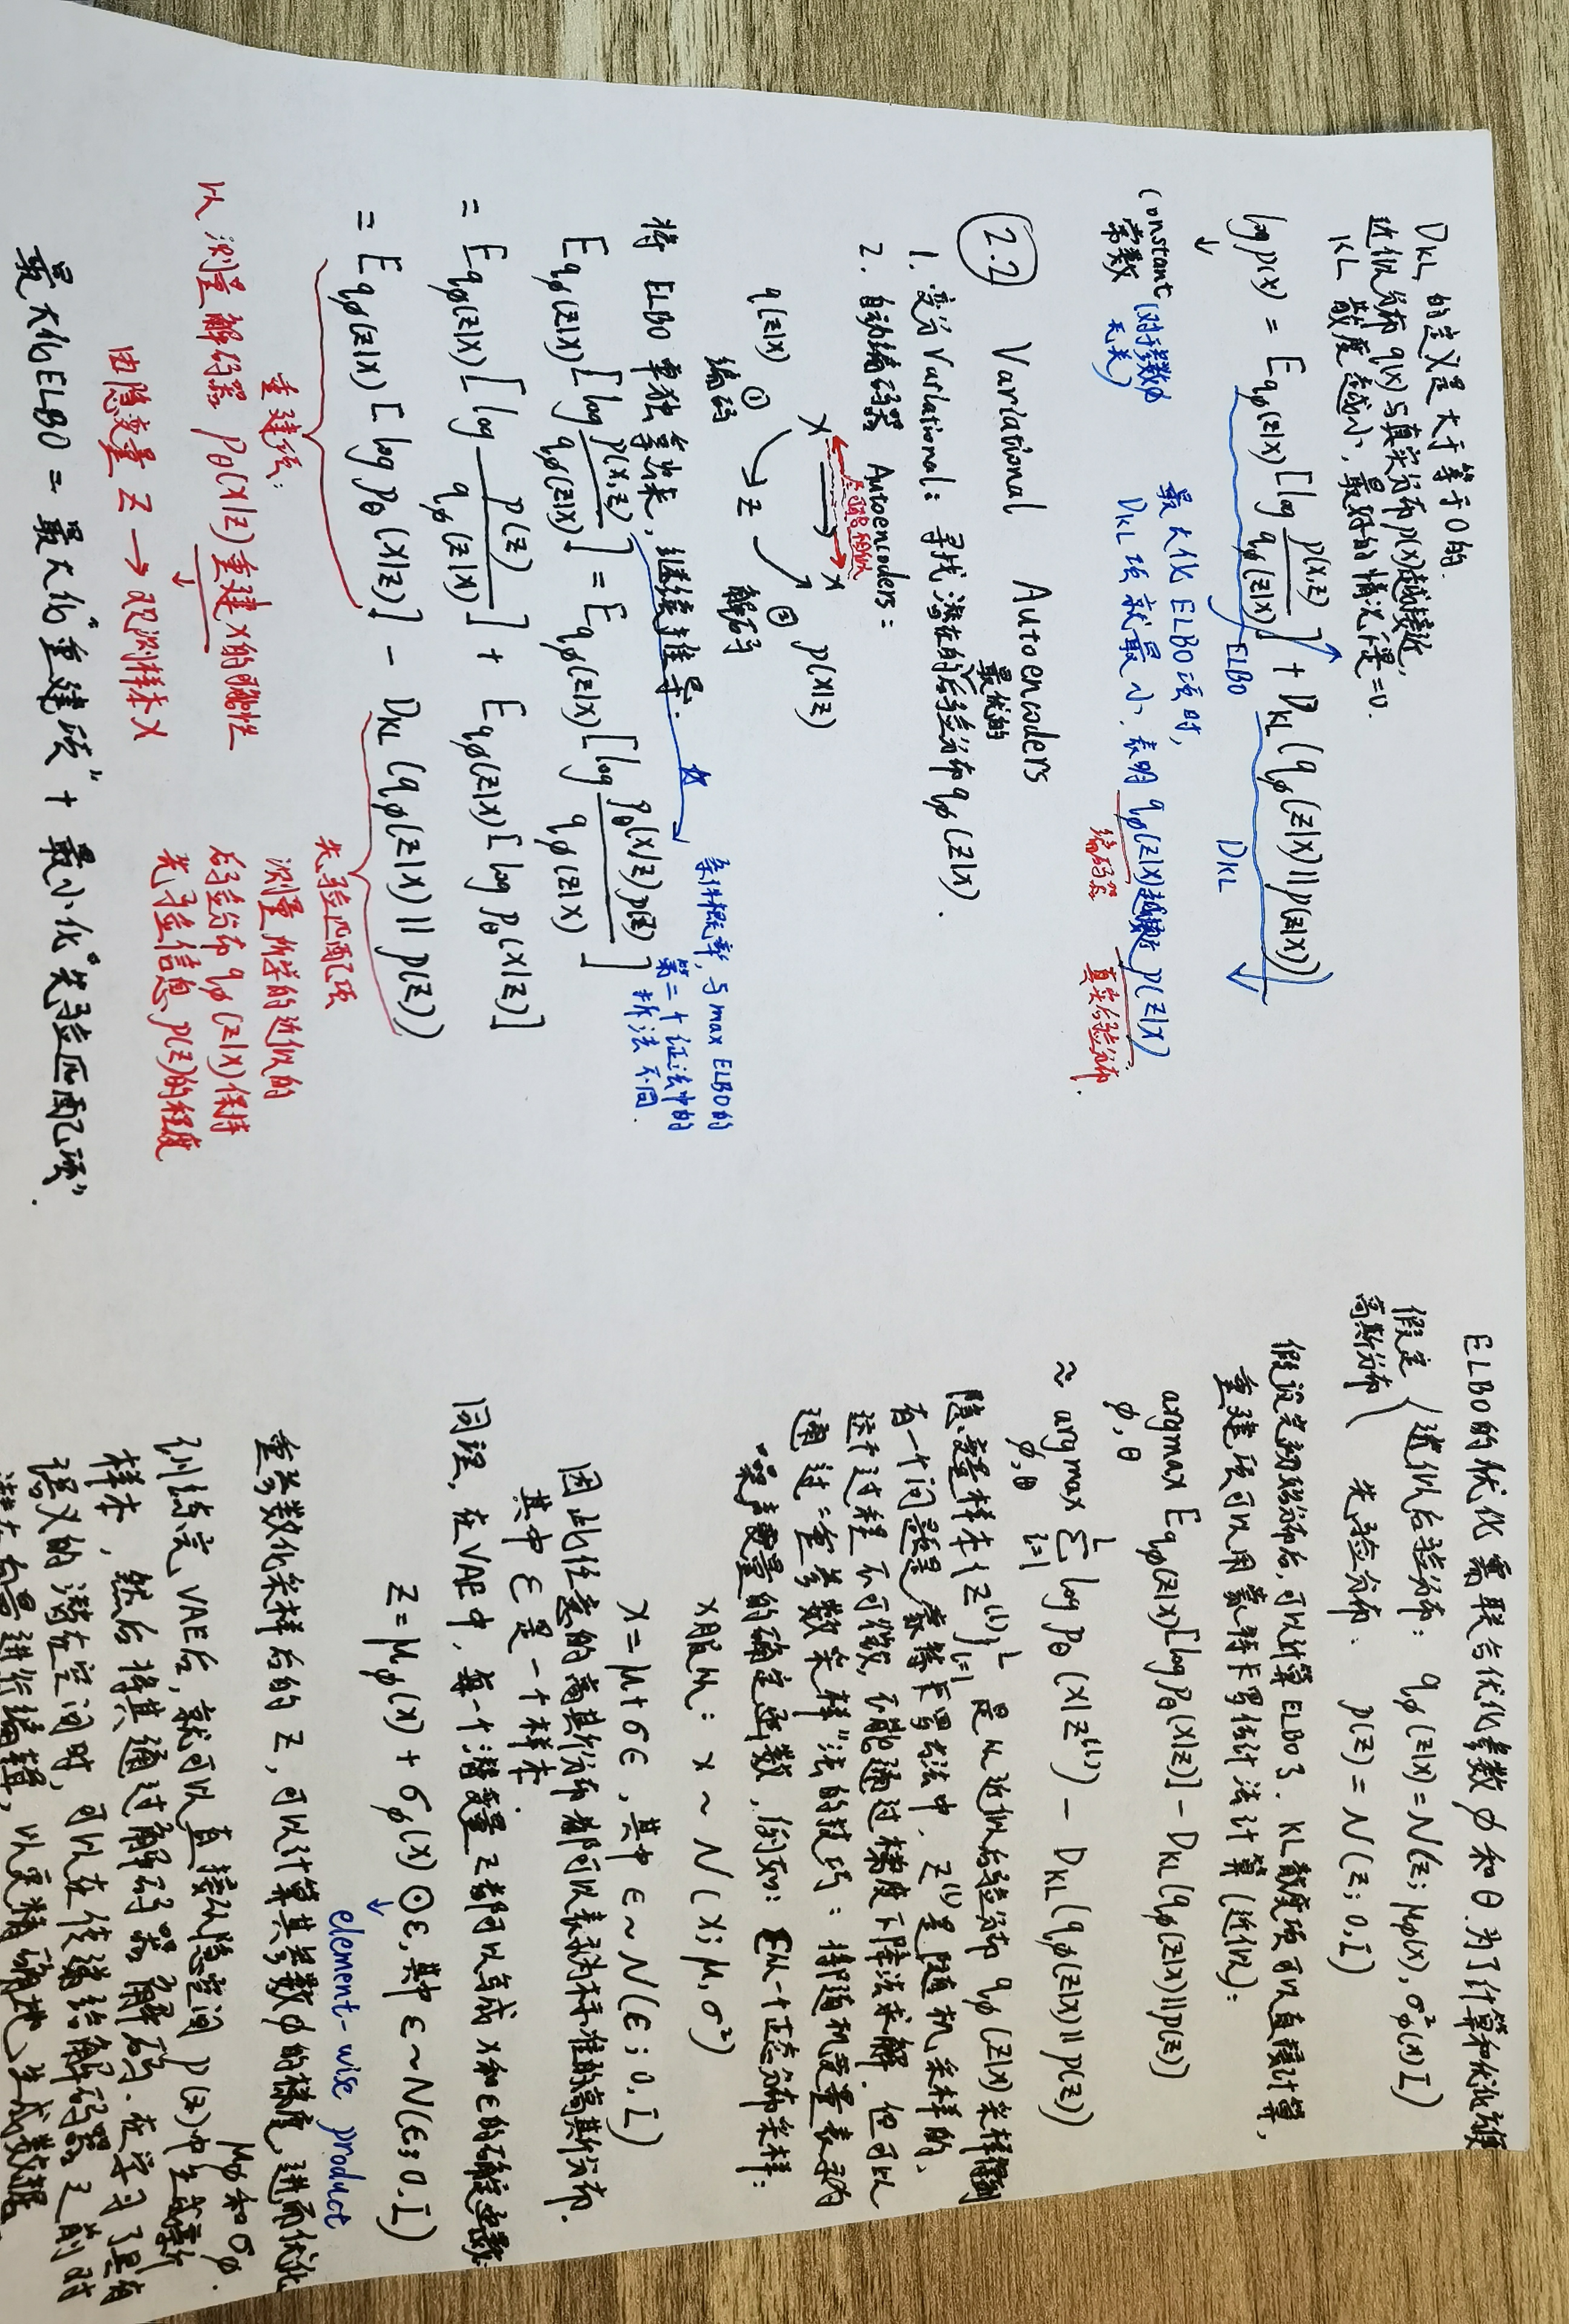 DKL 的定义是大于等于0的.
近似分布 q(x) 与真实分布 p(x) 越接近,
KL 散度越小, 最好的情况下是=0.
log p(x) = E qφ(z|x) [log p(x,z) / qφ(z|x)] + DKL (qφ(z|x) || p(z|x))
↓
ELBO
DKL
Constant (对于参数φ
常数 无关)
最大化 ELBO 项时,
DKL 项就最小, 表明 qφ(z|x) 越接近 p(z|x)
编码器
真实后验分布.
2.2 Variational Autoencoders
1. 变分 Variational: 寻找潜在的后验分布 qφ(z|x).
最优的
2. 自动编码器 Autoencoders:
x → x
q(z|x) ① → z → ② p(x|z)
编码
解码
将 ELBO 单独拿出来, 继续推导.
条件概率, 与 max ELBO 的
第二个证法中的
拆法不同.
E qφ(z|x) [log p(x,z) / qφ(z|x)] = E qφ(z|x) [log pθ(x|z)p(z) / qφ(z|x)]
= E qφ(z|x) [log p(z) / qφ(z|x)] + E qφ(z|x) [log pθ(x|z)]
= E qφ(z|x) [log pθ(x|z)] − DKL (qφ(z|x) || p(z))
重建项:
以测量解码器 pθ(x|z) 重建x的可能性
↓
由隐变量 z → 观测样本 x
先验匹配项
测量所学的近似的
后验分布 qφ(z|x) 保持
先验信息 p(z) 的程度
最大化ELBO = 最大化“重建项” + 最小化“先验匹配项”.
ELBO的优化需联合优化参数 φ 和 θ. 为了计算和优化方便
假定 { 近似后验分布: qφ(z|x) = N(z; μφ(x), σ²φ(x) I)
高斯分布 先验分布: p(z) = N(z; 0, I)
假设完前验分布后, 可以计算 ELBO 了. KL 散度项可以直接计算,
重建项可以用蒙特卡罗估计法计算 (近似):
argmax E qφ(z|x) [log pθ(x|z)] − DKL (qφ(z|x) || p(z))
φ, θ
≈ argmax Σ log pθ (x|z⁽ˡ⁾) − DKL (qφ(z|x) || p(z))
φ, θ l=1 L
隐变量样本 {z⁽ˡ⁾} L l=1 是从近似后验分布 qφ(z|x) 采样得到
有一个问题是蒙特卡罗方法中, z⁽ˡ⁾ 是随机采样的,
这个过程不可微, 不能通过梯度下降法求解. 但可以
通过“重参数采样”法的技巧: 将随机变量表示为
噪声变量的确定函数, 例如: 从一个正态分布采样:
x服从: x ~ N (x; μ, σ²)
x = μ + σε, 其中 ε ~ N(ε; 0, I)
因此任意的高斯分布都可以表示为标准的高斯分布.
其中 ε 是一个样本.
同理, 在VAE中, 每一个潜变量 z 都可以写成 x 和 ε 的确定函数.
z = μφ(x) + σφ(x) ⊙ ε, 其中 ε ~ N(ε; 0, I)
↓
element-wise product
重参数化采样后的 z, 可以计算其参数 φ 的梯度, 进而优化
μφ 和 σφ.
训练完 VAE 后, 就可以直接从隐空间 p(z) 中生成新
样本, 然后将其通过解码器解码. 在学习了具有
语义的潜在空间时, 可以在传递给解码器之前对
潜在向量进行编辑, 以更精确地生成数据.